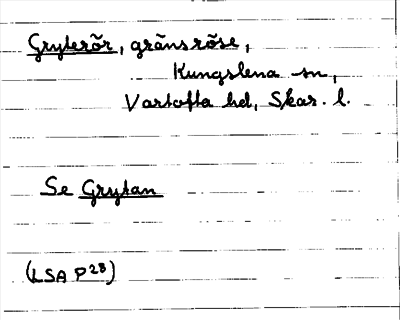 Gryterör, gränsröse,
Kungslena sn,
Vartofta hd, Skar. l.
Se Grytan
(LSA P28)